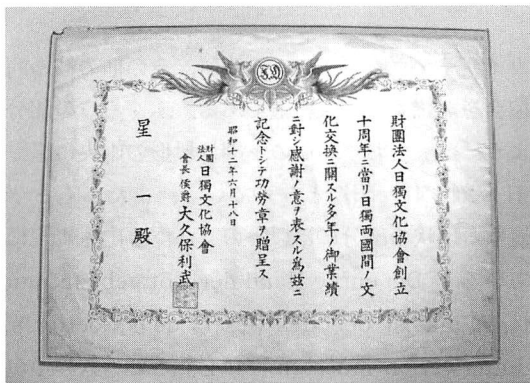 財團法人日獨文化協會創立
十周年ニ當リ日獨兩國間ノ文
化交換ニ關スル多年ノ御業績
ニ對シ感謝ノ意ヲ表スル爲玆ニ
記念トシテ功勞章ヲ贈呈ス
昭和十二年六月十八日
財團法人日獨文化協會
會長侯爵大久保利武
星一殿